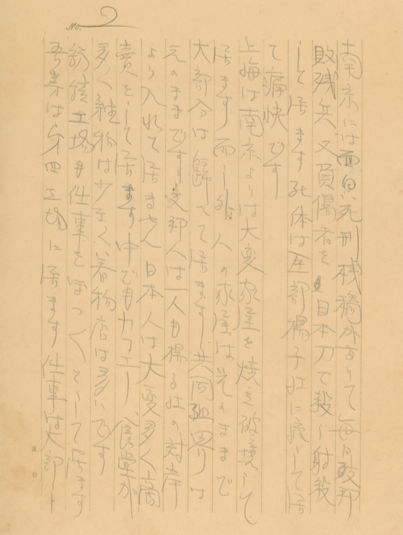 No. 2
南京には面白い死刑棧橋があって毎日敗
敗滅兵又負傷者を日本刀で殺し射殺
して居ます死体は全部揚子江に流して居
て痛快です
上海は南京よりは大変家屋を焼き破壊して
居ます 外人の家屋は元のままで
大部分は帰って居ます共同租界は
元のままです 支那人は一人も揚子江の対岸
より入れて居ません 日本人は大変多く商
売をして居ます中でもカフエー、食堂が
多く雑物は少なく着物店は多いです
工場も仕事をぼつぼつとして居ます
吾々は第四工場に居ます仕事は大部